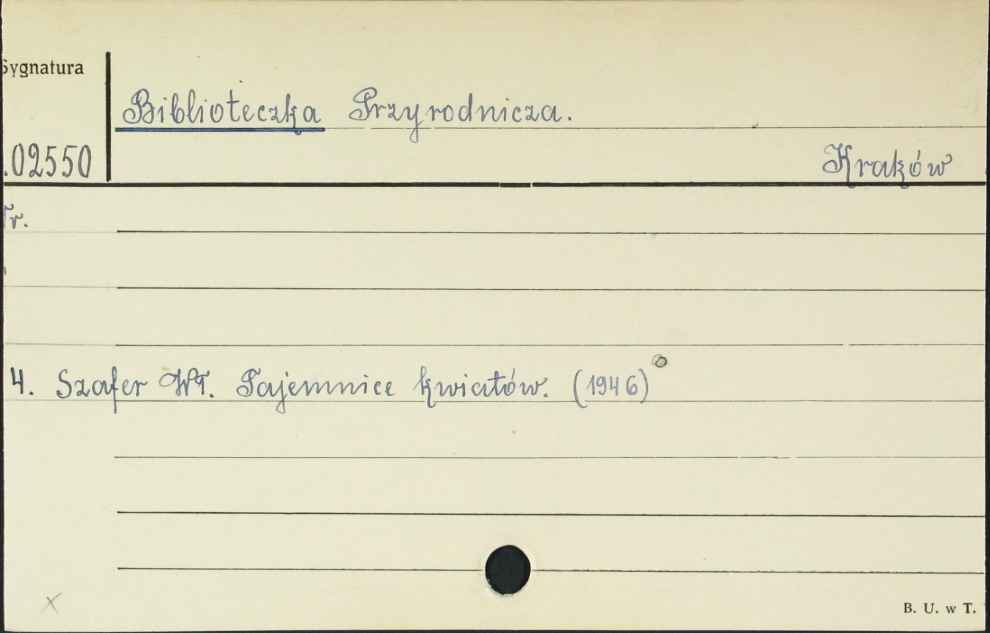 Sygnatura
Biblioteczka Przyrodnicza.
.02550
Kraków
Tr.
4. Szafer Wł. Tajemnice kwiatów. (1946)
x
B. U. w T.